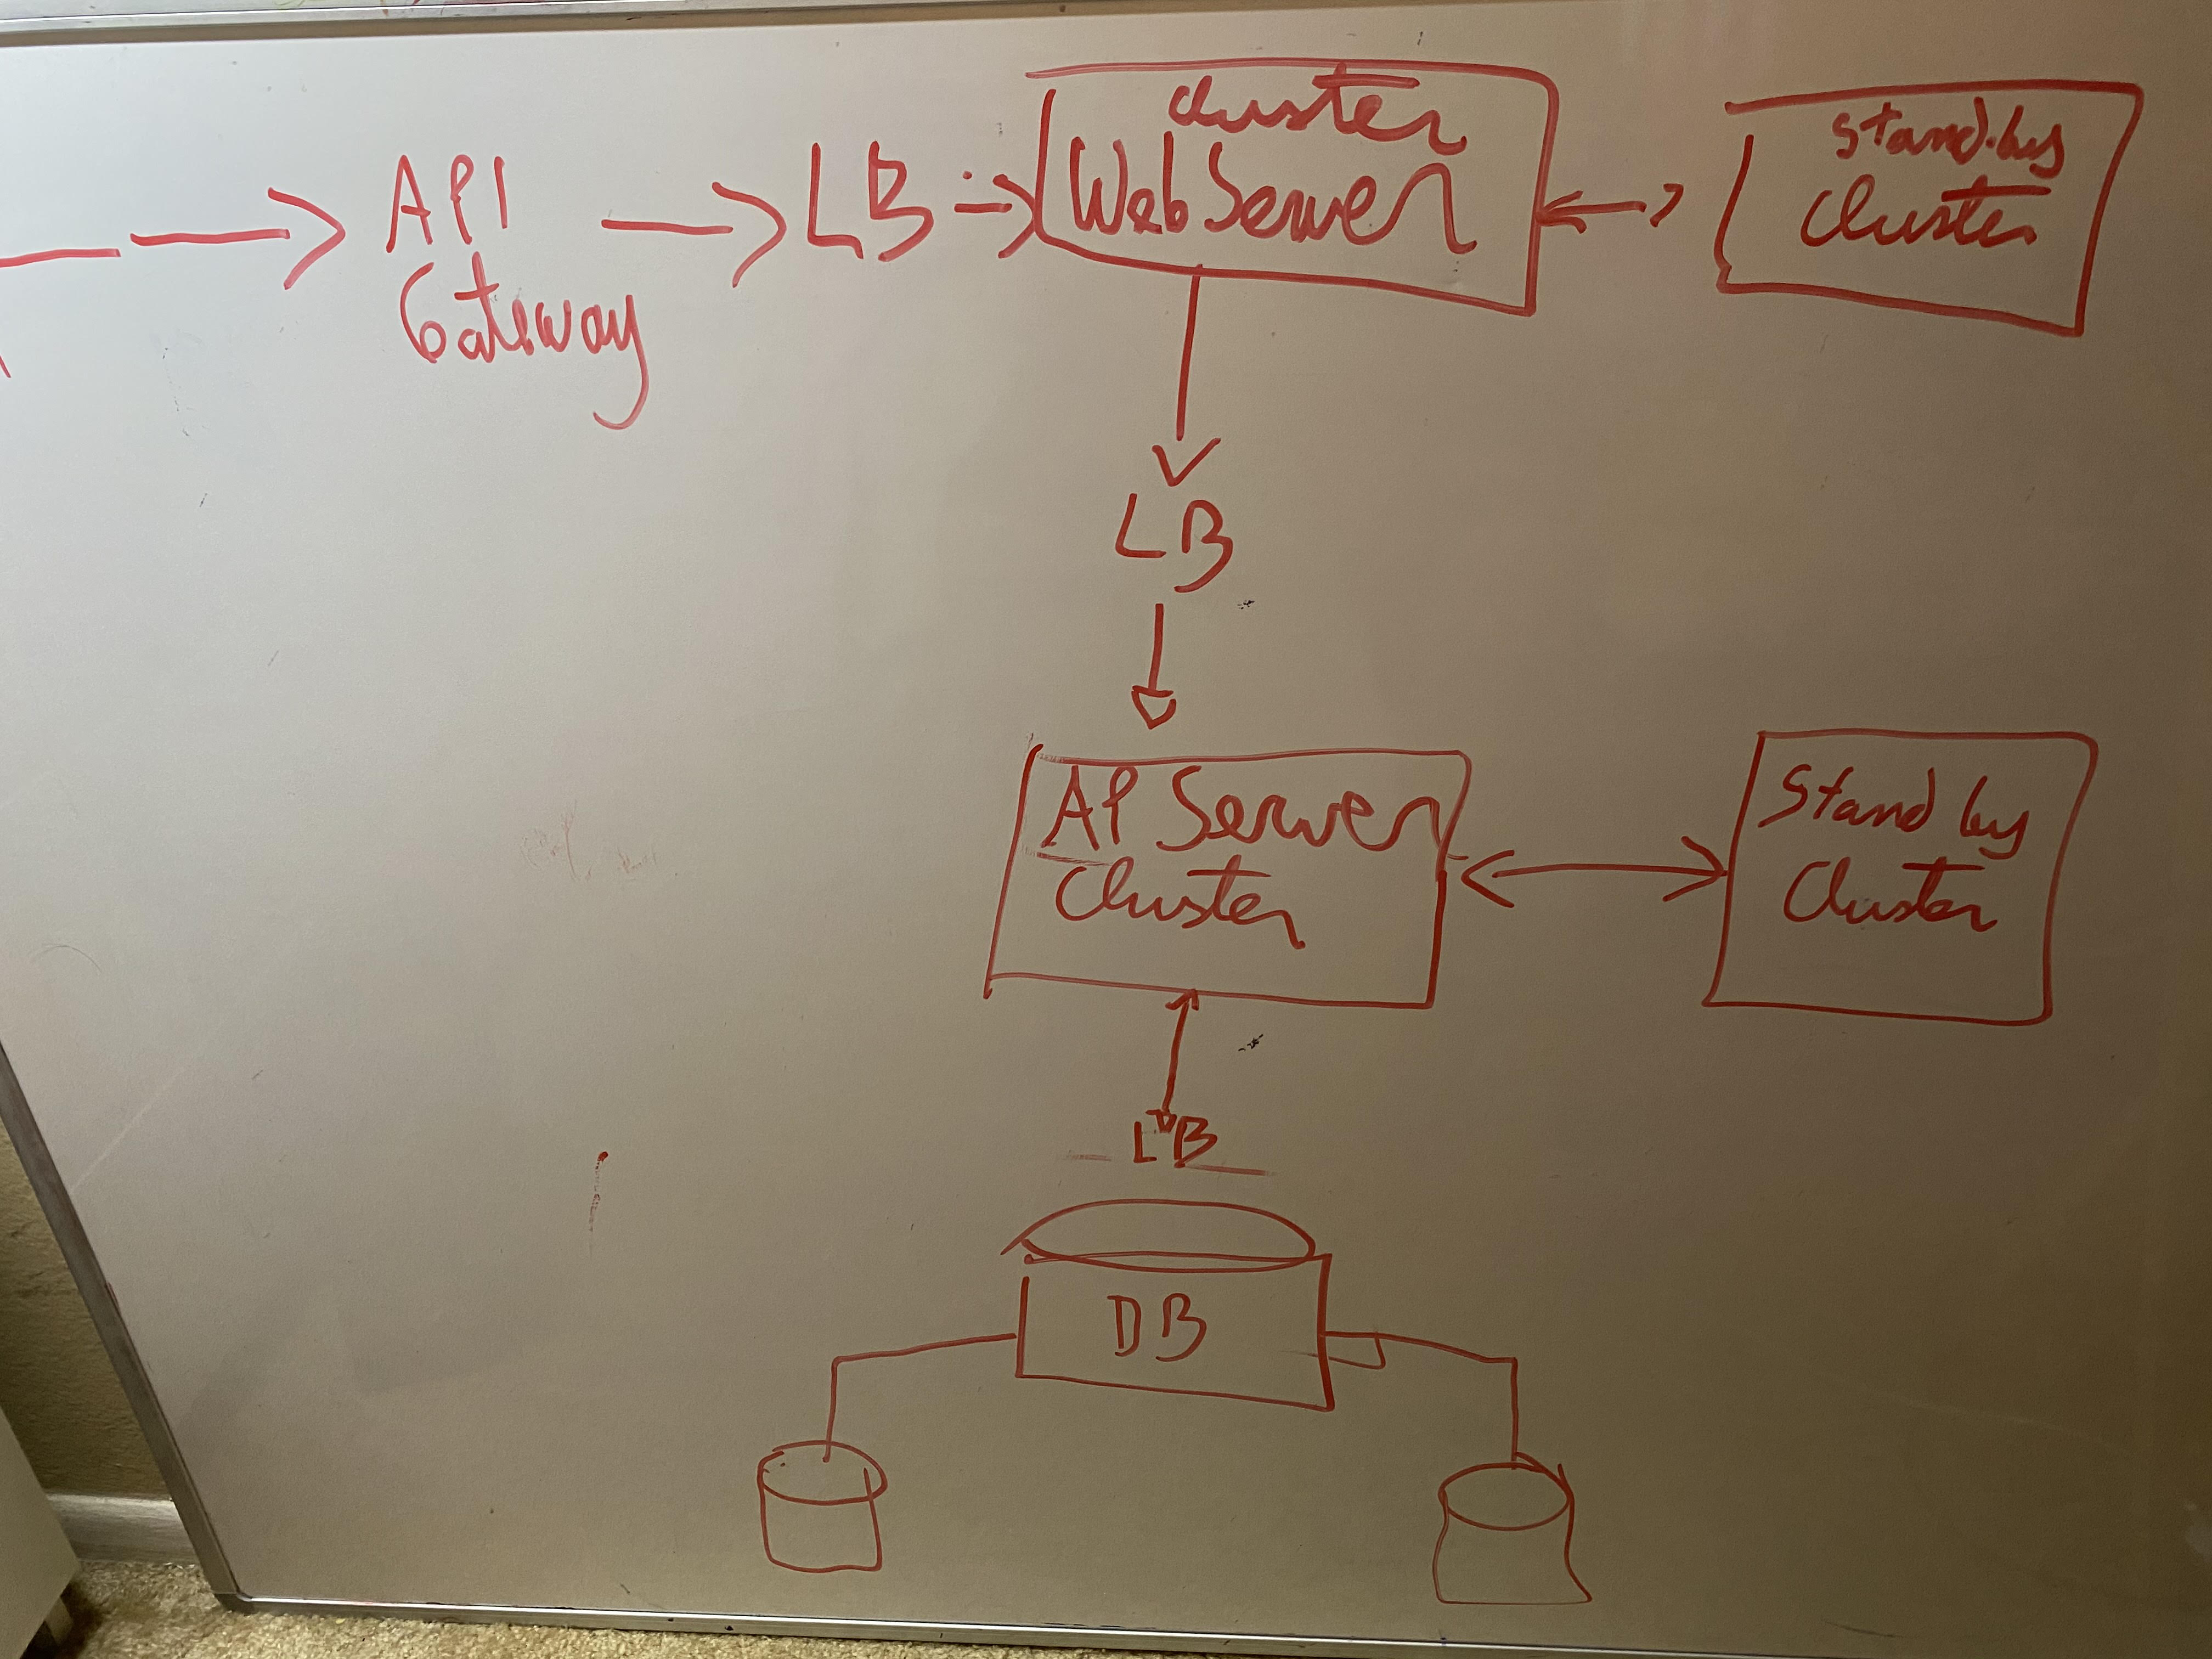 API
Gateway
LB
Cluster
Web Server
Stand-by
Cluster
LB
AP Server
Cluster
Stand by
Cluster
LB
DB